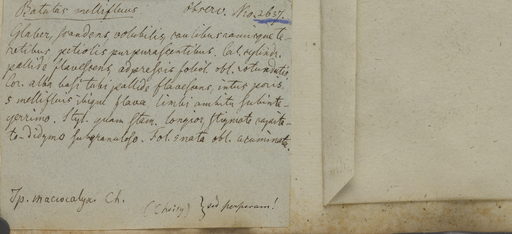 Batatas melliflua observ. No. 2637.
Glaber, scandens, volubilis, caulibus ramisque te-
retibus, petiolis purpurascentibus. Cal. cylindr.
pallide flavescens, adpressis foliol. obl. rotundatis.
Cor. alba basi tubi pallide flavescens, intus poris
5 mellifluis ibique flava limbi ambitu subinte-
gerrimo. Styl. quam stam. longior, stigmate capita-
to-didymo subgranuloso. Fol. enata obl. acuminata.
Ip. macrocalyx Ch.
(Choisy) } sed perperam!